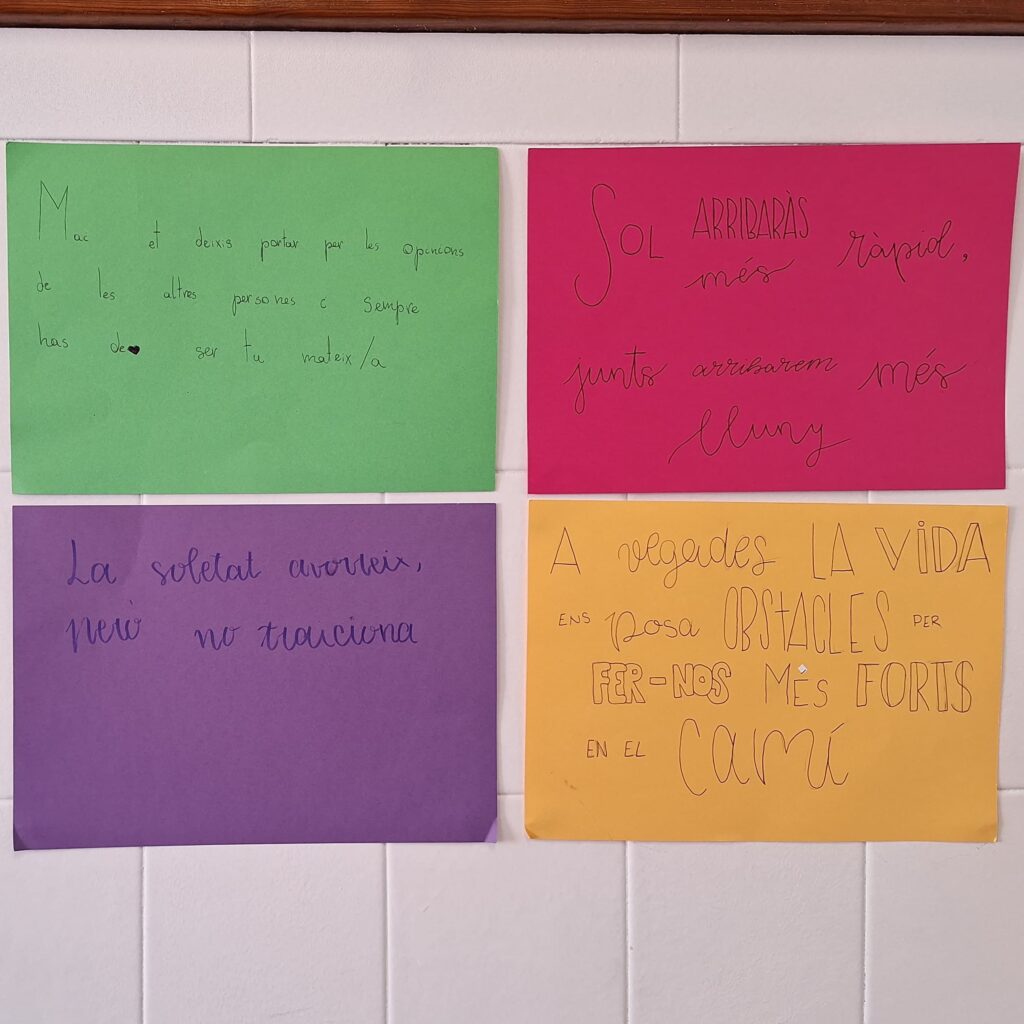 Mac et deixis portar per les opinions
de les altres persones i sempre
has de ser tu mateix/a
SOL ARRIBARÀS més ràpid,
junts arribarem més
lluny
La soletat avorreix,
però no traiciona
A vegades LA VIDA
ENS posa OBSTACLES PER
FER-NOS MÉS FORTS
EN EL CAMÍ